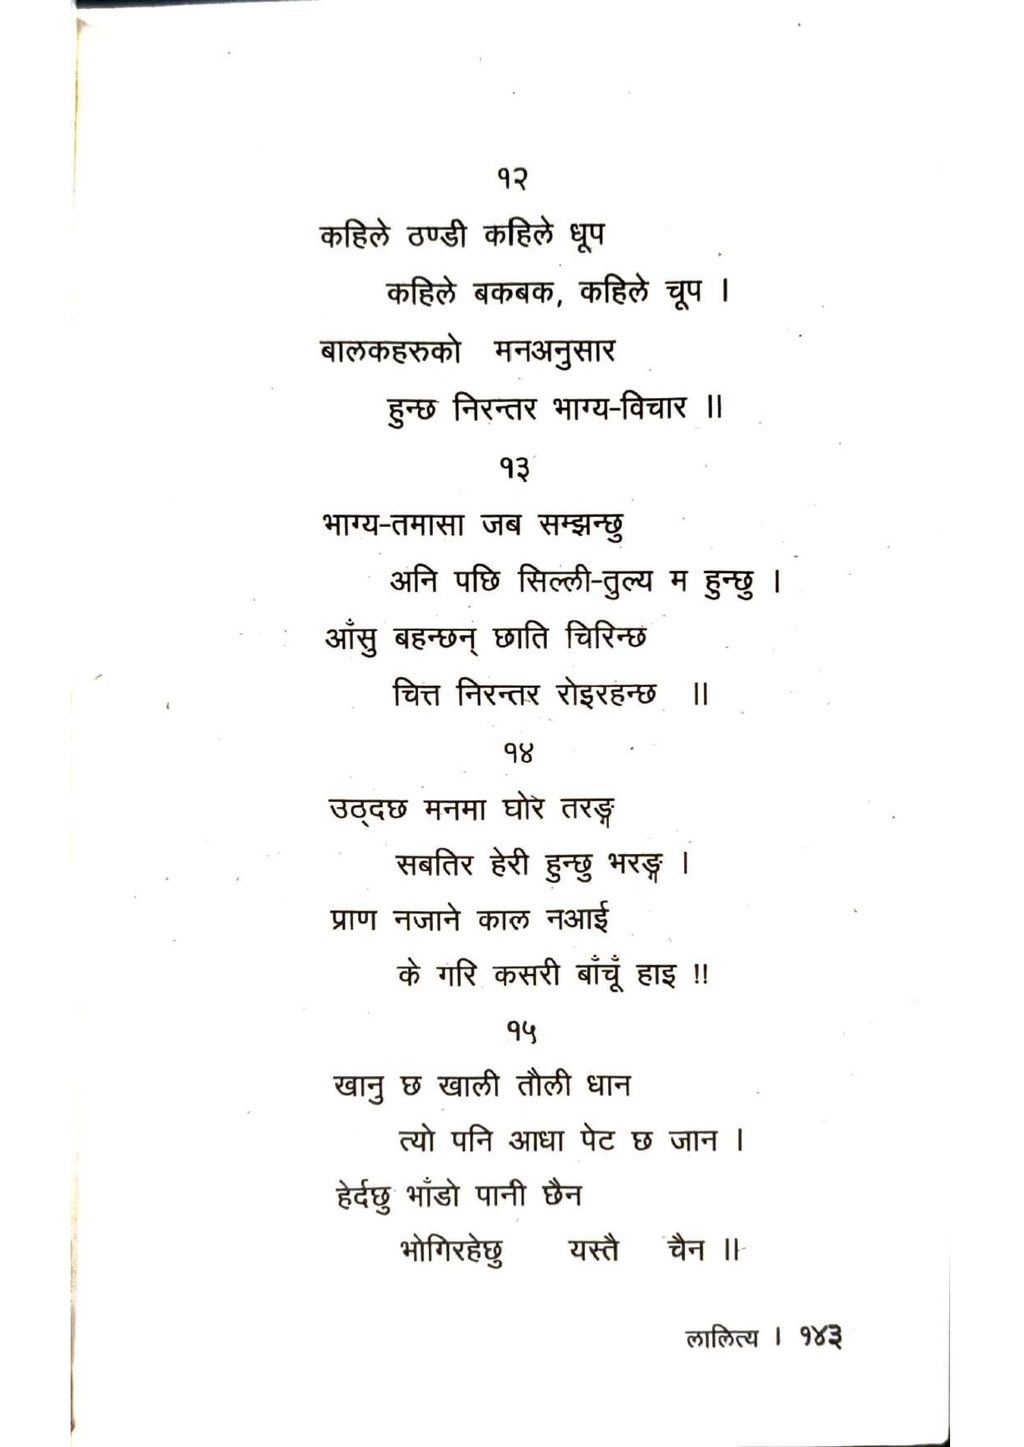 १२
कहिले ठण्डी कहिले धूप
कहिले बकबक, कहिले चूप ।
बालकहरुको मनअनुसार
हुन्छ निरन्तर भाग्य-विचार ॥
१३
भाग्य-तमासा जब सम्झन्छु
अनि पछि सिल्ली-तुल्य म हुन्छु ।
आँसु बहन्छन् छाति चिरिन्छ
चित्त निरन्तर रोइरहन्छ ॥
१४
उठ्दछ मनमा घोर तरङ्ग
सबतिर हेरी हुन्छु भरङ्ग ।
प्राण नजाने काल नआई
के गरि कसरी बाँचूँ हाइ !!
१५
खानु छ खाली तौली धान
त्यो पनि आधा पेट छ जान ।
हेर्दछु भाँडो पानी छैन
भोगिरहेछु यस्तै चैन ॥
लालित्य । १४३